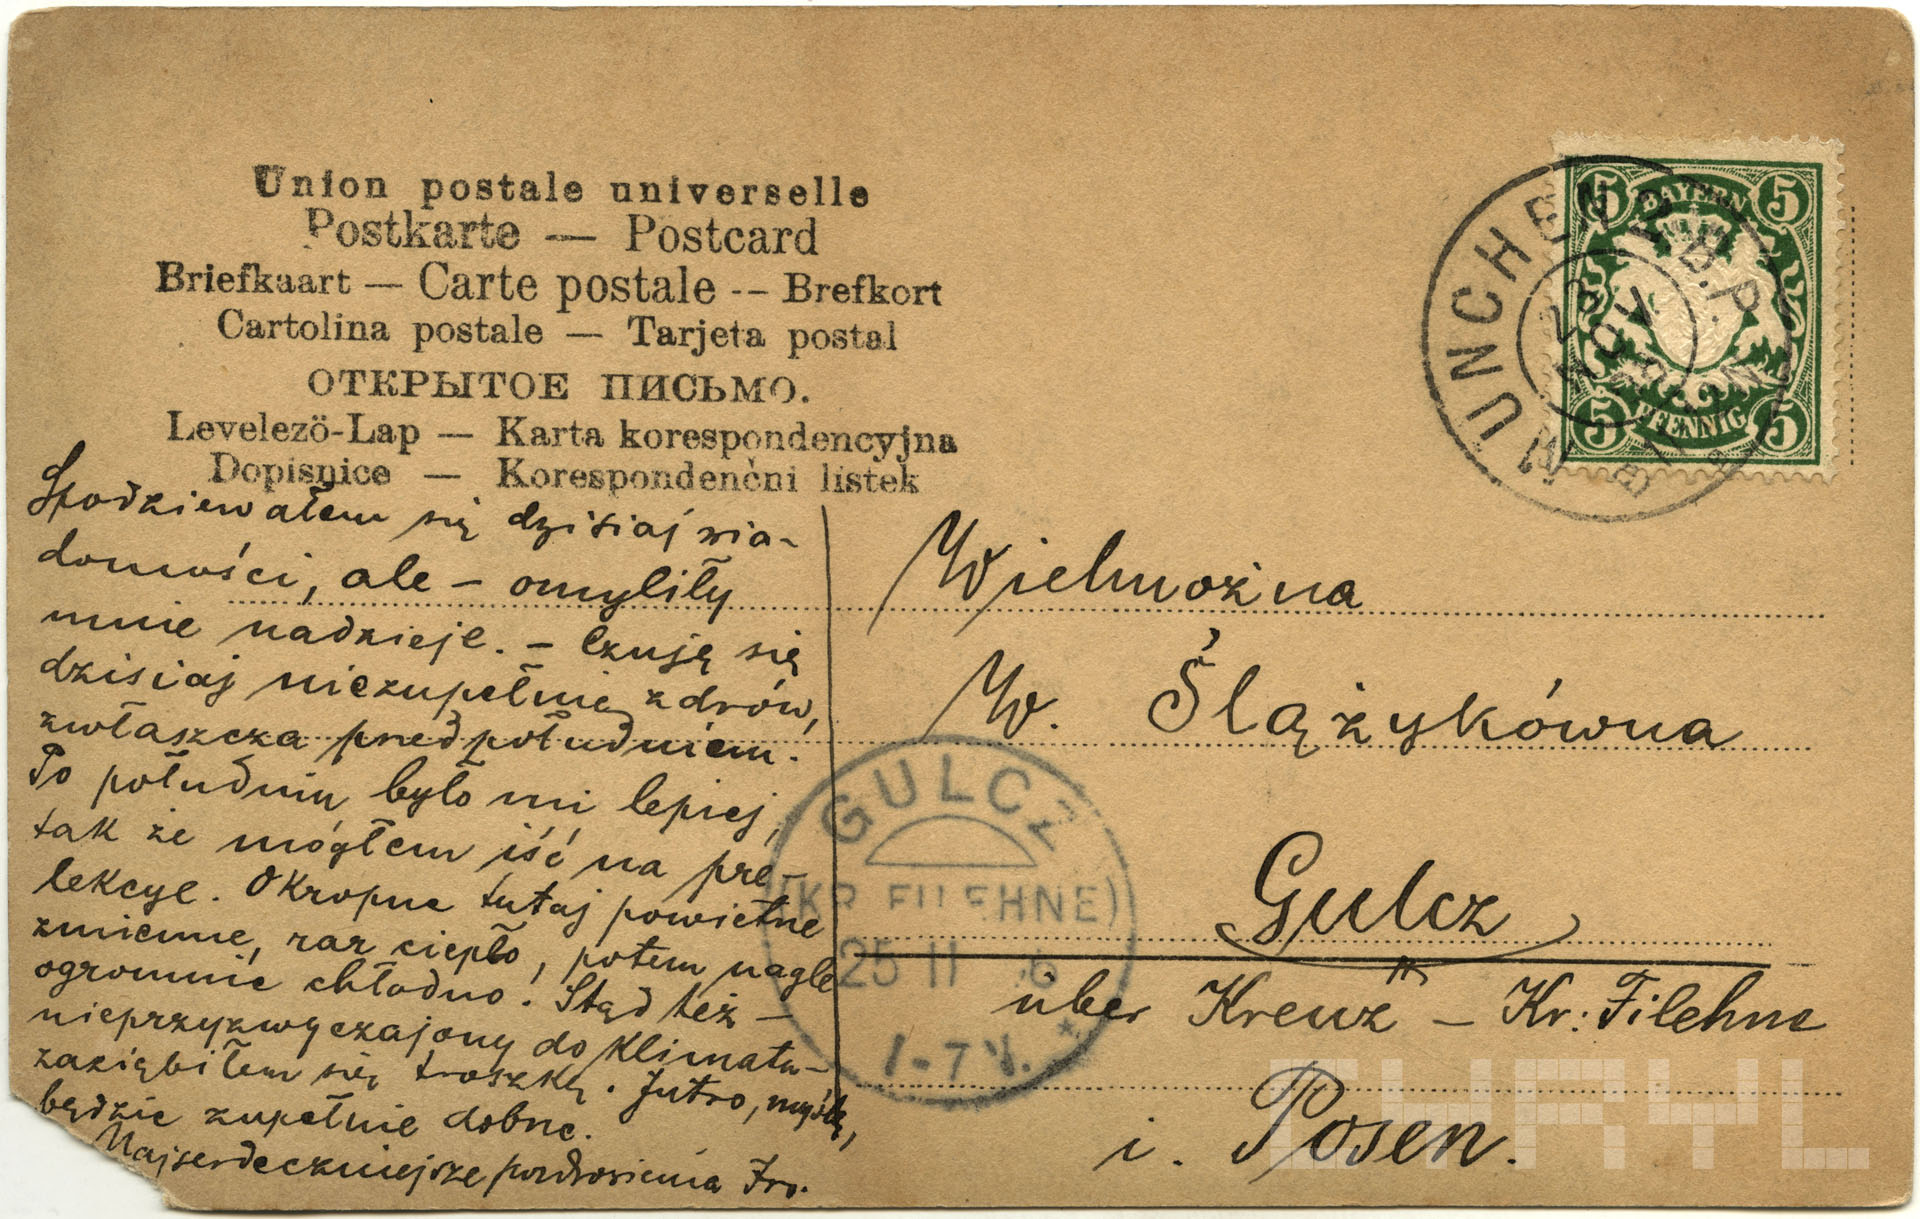 Union postale universelle
Postkarte — Postcard
Briefkaart — Carte postale -- Brefkort
Cartolina postale — Tarjeta postal
ОТКРЫТОЕ ПИСЬМО.
Levelezö-Lap — Karta korespondencyjna
Dopisnice — Korespondenčni listek
Spodziewałem się dzisiaj wia-
domości, ale – omyliły
mnie nadzieje. – Czuję się
dzisiaj niezupełnie zdrów,
zwłaszcza przed południem.
Po południu było mi lepiej,
tak że mógłem iść na pre-
lekcye. Okropne tutaj powietrze
zmienne, raz ciepło, potem nagle
ogromnie chłodno. Stąd też –
nieprzyzwyczajony do klimatu –
zaziębiłem się troszkę. Jutro, myślę,
będzie zupełnie dobrze.
Najserdeczniejsze pozdrowienia
BAYERN
5 5
5 PFENNIG 5
MÜNCHEN 2 B.P.
Wielmożna
W. Ślązykówna
Gulcz
über Kreuz – Kr: Filehne
i. Posen.
GULCZ
(KR. FILEHNE)
25 11
1-7 V.
KARYL